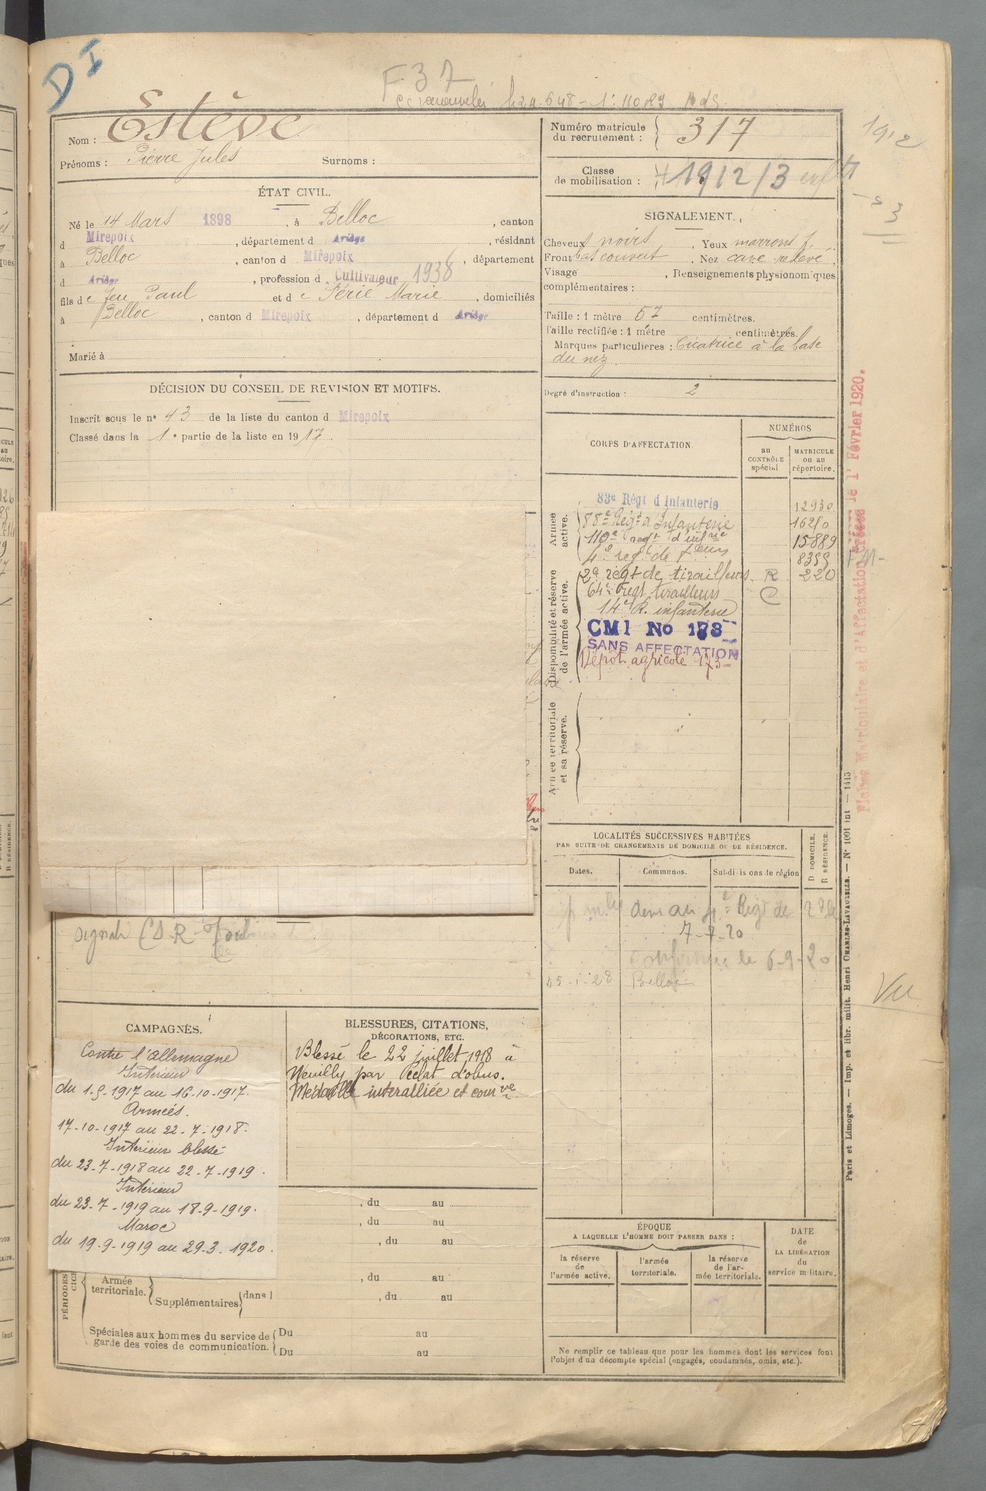 D I
F 37
Nom : Estève
Prénoms : Pierre Jules Surnoms :
Numéro matricule du recrutement : 317
Classe de mobilisation : 1912/3
1912
ÉTAT CIVIL.
Né le 14 Mars 1898, à Belloc, canton
d Mirepoix, département d Ariège, résidant
à Belloc, canton d Mirepoix, département
d Ariège, profession d Cultivateur 1938
fils de feu Paul et de Férié Marie, domiciliés
à Belloc, canton d Mirepoix, département d Ariège
Marié à
SIGNALEMENT.
Cheveux noirs, Yeux marrons f
Front bas couvert, Nez cave relevé
Visage , Renseignements physionomiques
complémentaires :
Taille : 1 mètre 67 centimètres.
Taille rectifiée : 1 mètre centimètres.
Marques particulières : Cicatrice à la base
du nez
Degré d'instruction : 2
DÉCISION DU CONSEIL DE REVISION ET MOTIFS.
Inscrit sous le n° 43 de la liste du canton d Mirepoix
Classé dans la 1e partie de la liste en 1917.
CORPS D'AFFECTATION.
NUMÉROS
au CONTRÔLE spécial
MATRICULE ou au répertoire.
Armée active.
83e Régt d'Infanterie 12930
88e Régt d'Infanterie 16210
119e régt d'infrie 15889
4e reg de Teurs 8359
Disponibilité et réserve de l'armée active.
2e régt de tirailleurs R 220
64e Régt tirailleurs C
14e R. infanterie
CMI No 178
SANS AFFECTATION
Dépôt agricole 173
Armée territoriale et sa réserve.
Fiches Matriculaire et d'Affectation créées le 1er Février 1920.
LOCALITÉS SUCCESSIVES HABITÉES
PAR SUITE DE CHANGEMENTS DE DOMICILE OU DE RÉSIDENCE.
Dates. Communes. Subdivisions de région
D DOMICILE.
R RÉSIDENCE.
7-7-20
confirmée le 6-9-20
Belloc
Vu
signalé CSR
CAMPAGNES.
Contre l'allemagne
Intérieur
du 1-9-1917 au 16-10-1917.
Armées.
17-10-1917 au 22-7-1918.
Intérieur blessé
du 23-7-1918 au 22-7-1919.
Intérieur
du 23-7-1919 au 18-9-1919.
Maroc
du 19-9-1919 au 29-3-1920.
BLESSURES, CITATIONS,
DÉCORATIONS, ETC.
Blessé le 22 juillet 1918 à
Neuilly par éclat d'obus.
Médaille interalliée et comve
, du au
, du au
, du au
Armée territoriale. , du au
Supplémentaires dans l , du au
Spéciales aux hommes du service de garde des voies de communication. Du au
Du au
ÉPOQUE
A LAQUELLE L'HOMME DOIT PASSER DANS :
la réserve de l'armée active.
l'armée territoriale.
la réserve de l'armée territoriale.
DATE de LA LIBÉRATION du service militaire.
Ne remplir ce tableau que pour les hommes dont les services font
l'objet d'un décompte spécial (engagés, condamnés, omis, etc.).
Paris et Limoges. — Imp. et libr. milit. Henri CHARLES-LAVAUZELLE. — N° 1001 int — 1415